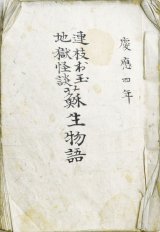 慶應四年
連枝お玉
地獄怪談
蘇生物語